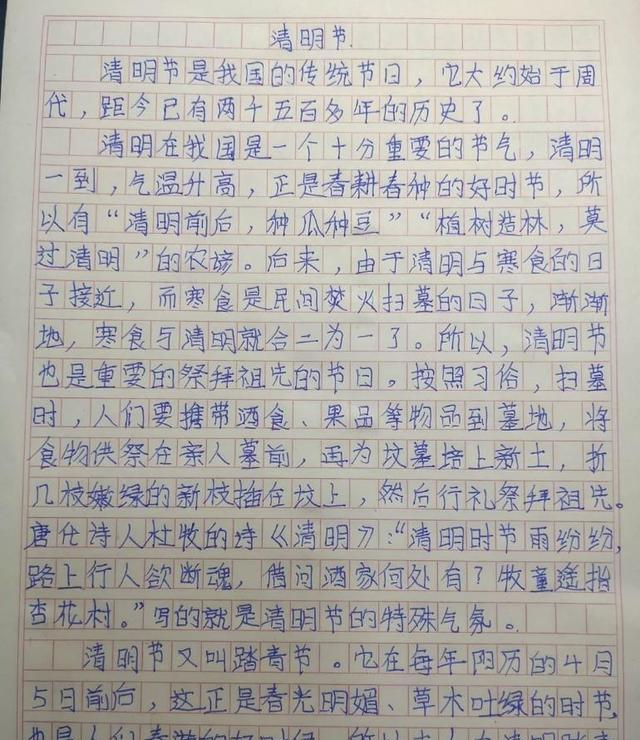 清明节.
清明节是我国的传统节日，它大约始于周
代，距今已有两千五百多年的历史了。
清明在我国是一个十分重要的节气，清明
一到，气温升高，正是春耕春种的好时节，所
以有“清明前后，种瓜种豆”“植树造林，莫
过清明”的农谚。后来，由于清明与寒食的日
子接近，而寒食是民间焚火扫墓的日子，渐渐
地，寒食与清明就合二为一了。所以，清明节
也是重要的祭拜祖先的节日。按照习俗，扫墓
时，人们要携带酒食、果品等物品到墓地，将
食物供祭在亲人墓前，再为坟墓培上新土，折
几枝嫩绿的新枝插在坟上，然后行礼祭拜祖先。
唐代诗人杜牧的诗《清明》：“清明时节雨纷纷，
路上行人欲断魂，借问酒家何处有？牧童遥指
杏花村。”写的就是清明节的特殊气氛。
清明节又叫踏青节。它在每年阳历的4月
5日前后，这正是春光明媚、草木吐绿的时节，
也是人们春游的好时候，所以古人有清明踏青